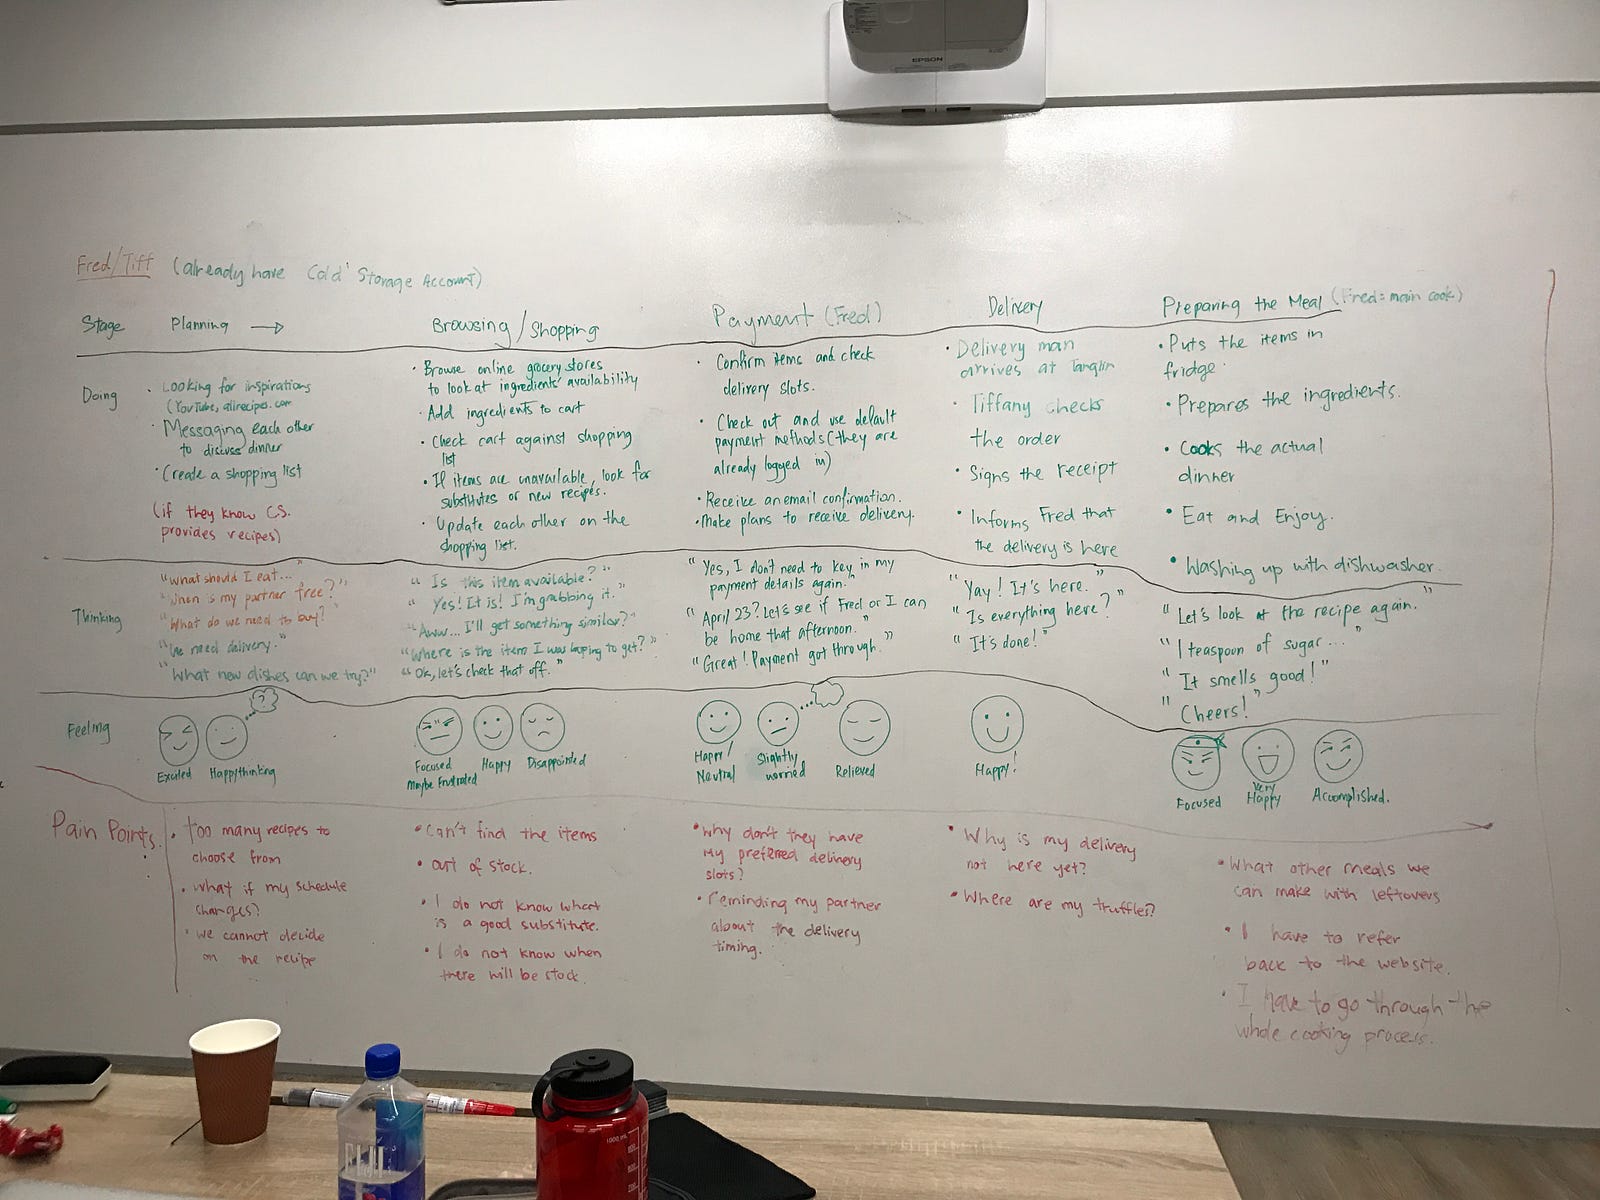 EPSON
Fred/Tiff (already have Cold Storage Account)
Stage
Planning →
Browsing/Shopping
Payment (Fred)
Delivery
Preparing the Meal (Fred = main cook)
Doing
• Looking for inspirations
(YouTube, allrecipes.com
• Messaging each other
to discuss dinner
• Create a shopping list
(if they know CS.
provides recipes)
• Browse online grocery stores
to look at ingredients' availability
• Add ingredients to cart
• Check cart against shopping
list
• If items are unavailable, look for
substitutes or new recipes.
• Update each other on the
shopping list.
• Confirm items and check
delivery slots.
• Check out and use default
payment methods (they are
already logged in)
• Receive an email confirmation.
• Make plans to receive delivery.
• Delivery man
arrives at Tanglin
• Tiffany checks
the order
• Signs the receipt
• Informs Fred that
the delivery is here
• Puts the items in
fridge.
• Prepares the ingredients.
• Cooks the actual
dinner
• Eat and Enjoy.
• Washing up with dishwasher.
Thinking
"What should I eat..."
"When is my partner free?"
"What do we need to buy?"
"We need delivery."
"What new dishes can we try?"
"Is this item available?"
"Yes! It is! I'm grabbing it."
"Aww... I'll get something similar?"
"Where is the item I was hoping to get?"
"Ok, let's check that off."
"Yes, I don't need to key in my
payment details again."
"April 23? Let's see if Fred or I can
be home that afternoon."
"Great! Payment got through."
"Yay! It's here."
"Is everything here?"
"It's done!"
"Let's look at the recipe again."
"1 teaspoon of sugar..."
"It smells good!"
"Cheers!"
Feeling
?
Excited
Happy thinking
Focused
Maybe Frustrated
Happy
Disappointed
Happy/
Neutral
Slightly
worried
Relieved
Happy!
Focused
Very
Happy
Accomplished.
Pain Points.
• Too many recipes to
choose from
• What if my schedule
changes?
• We cannot decide
on the recipe
• Can't find the items
• Out of stock.
• I do not know what
is a good substitute.
• I do not know when
there will be stock.
• Why don't they have
my preferred delivery
slots?
• Reminding my partner
about the delivery
timing.
• Why is my delivery
not here yet?
• Where are my truffles?
• What other meals we
can make with leftovers
• I have to refer
back to the website.
• I have to go through the
whole cooking process.
FIJI